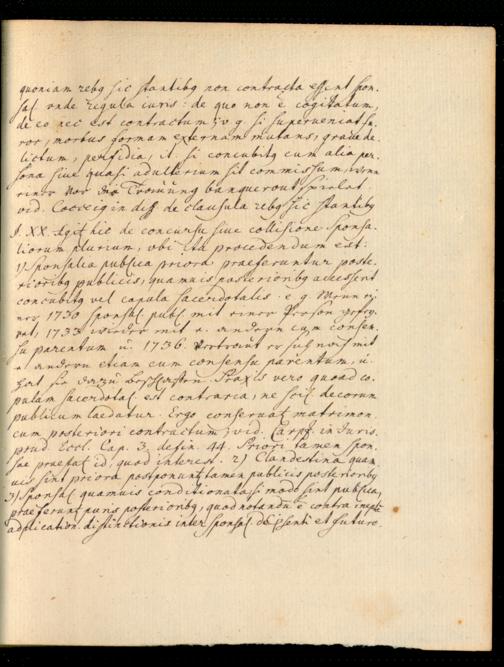 quoniam rebq sic stantibq non contracta essent spon-
sal vnde regula iuris: de quo non e cogitatum,
de eo nec est contractum, v. g. si superveniat fu-
ror, morbus formam externam mutans, grave de-
lictum, perfidia, it. si concubitq cum alia per-
sona sive quasi adulterium sit commissum, wenn
einer vor der Trauung banquerout spielet,
vid. Cocceij in diss de clausula rebq sic stantibq
§. XX. Agit hic de concursu sive collisione sponsa-
liorum plurium, ubi ita procedendum est:
1) Sponsalia publica priora praeferuntur poste-
rioribq publicis, quamvis posterioribq accesserit
concubitq vel copula sacerdotalis. e. g. Wenn ei-
ner 1730 sponsal publ mit einer Person gehey-
rat, 1733 wieder mit e. andern cum consen-
su parentum u. 1736 vertrauet er sich noch mit
e andern etiam cum consensu parentum, u.
hat sie dazu beschlaffen. Praxis vero quoad co-
pulam sacerdotal est contraria, ne scil decorum
publicum laedatur. Ergo conservat matrimon.
cum posteriori contractum, vid. Carpz. in Juris-
prud. Eccl. Cap. 3. defin. 44. Priori tamen spon-
sae praestat id, quod interest. 2) Clandestina quam-
vis sint priora postponunt tamen publicis posterioribq
3) Sponsal quamvis conditionata si modo sint publica,
praeferunt puris posterioribq, quod notandu e contra inepta
adplication. distinctionis inter sponsal de psenti et futuro.